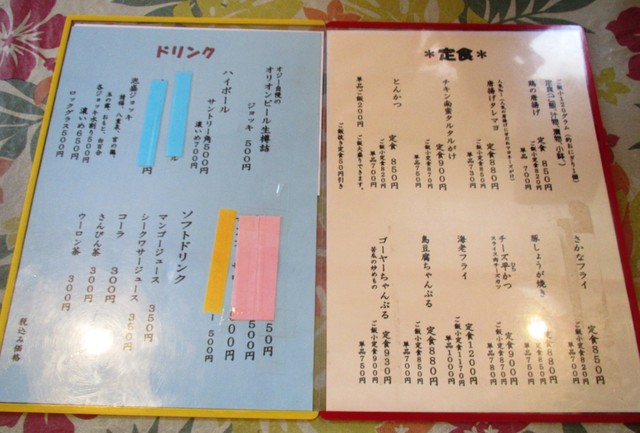 ドリンク
オジー自慢の
オリオンビール生樽詰
ジョッキ 500円
ハイボール
サントリー角500円
濃いめ700円
ル
円
泡盛ジョッキ
水割り500円
濃いめ650円
ロックグラス550円
50円
500円
500円
ソフトドリンク
マンゴージュース 350円
シークヮサージュース 350円
コーラ 300円
さんぴん茶 300円
ウーロン茶 300円
税込み価格
*定食*
ご飯小120グラム
定食(ご飯、汁物、漬物、小鉢)
鶏の唐揚げ
定食 850円
ご飯小定食820円
単品 700円
唐揚げタレマヨ
定食 880円
ご飯小定食850円
単品 730円
チキン南蛮タルタルがけ
定食900円
ご飯小定食870円
単品 750円
とんかつ
定食 850円
ご飯小定食820円
単品 700円
単品ご飯200円
ご飯大盛りできます。
ご飯抜き定食50円引き
さかなフライ
定食850円
ご飯小定食820円
単品 700円
豚しょうが焼き
定食880円
ご飯小定食850円
単品 780円
チーズ平かつ
スライス肉チーズカツ
定食900円
ご飯小定食870円
単品 780円
海老フライ
定食1200円
ご飯小定食1170円
単品 1000円
島豆腐ちゃんぷる
定食880円
ご飯小定食850円
単品 700円
ゴーヤーちゃんぷる
苦瓜の炒めもの
定食930円
ご飯小定食900円
単品 750円